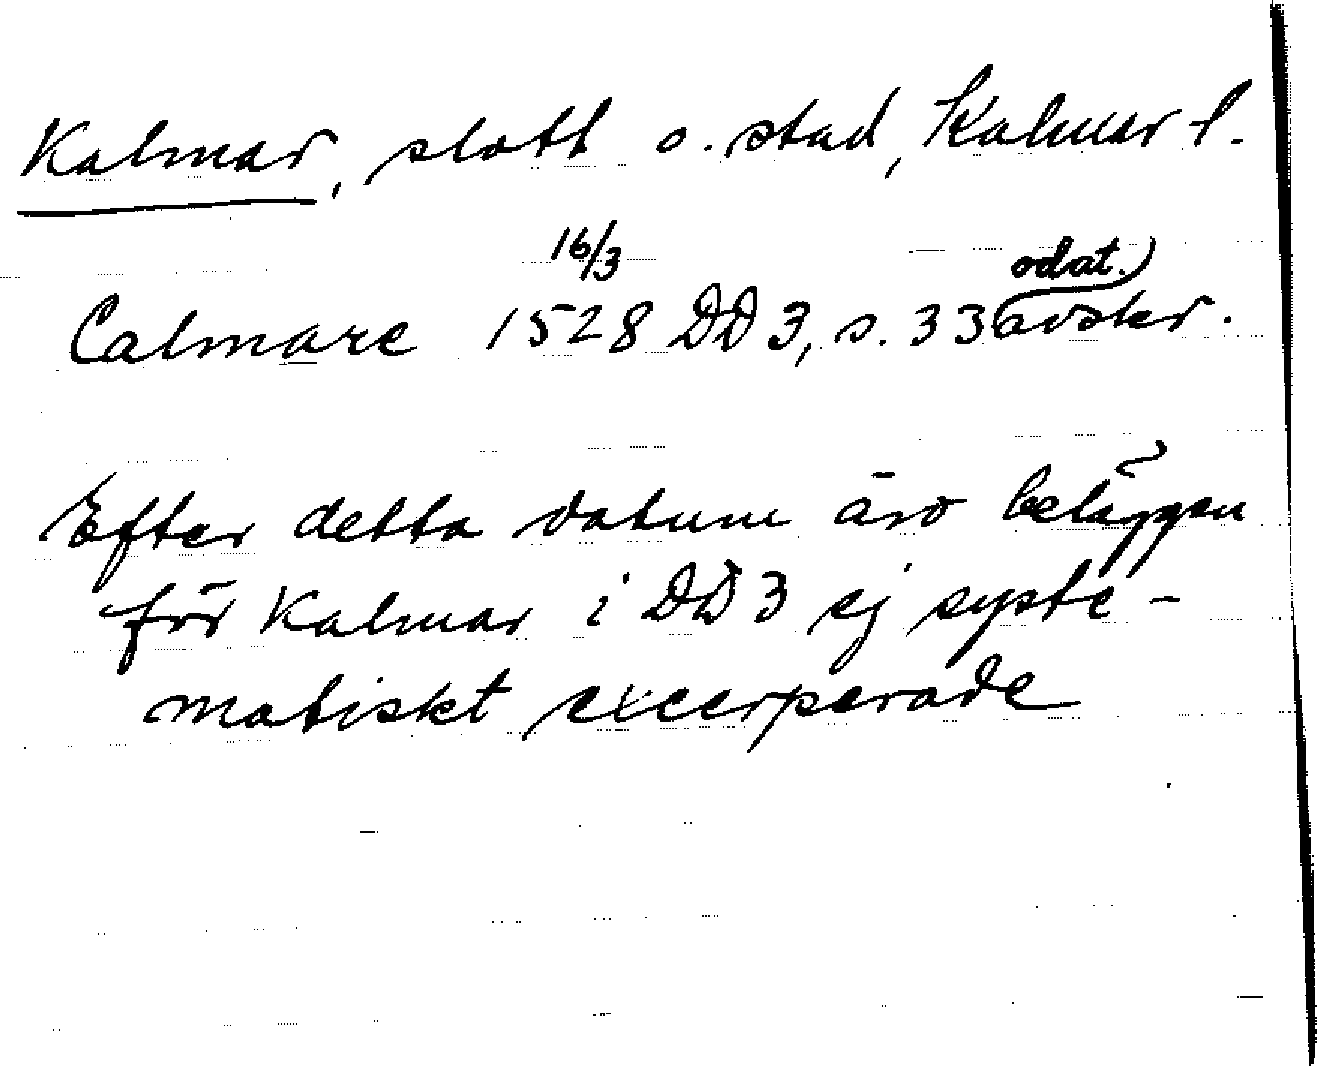 Kalmar, slott o. stad, Kalmar l.
Calmare 16/3 1528 DD 3, s. 33 odat.) avskr.
Efter detta datum äro beläggen
för Kalmar i DD 3 ej syste-
matiskt excerperade